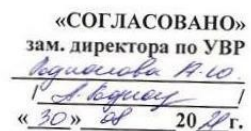 «СОГЛАСОВАНО»
зам. директора по УВР
/ /
« 30 » 08 20 г.